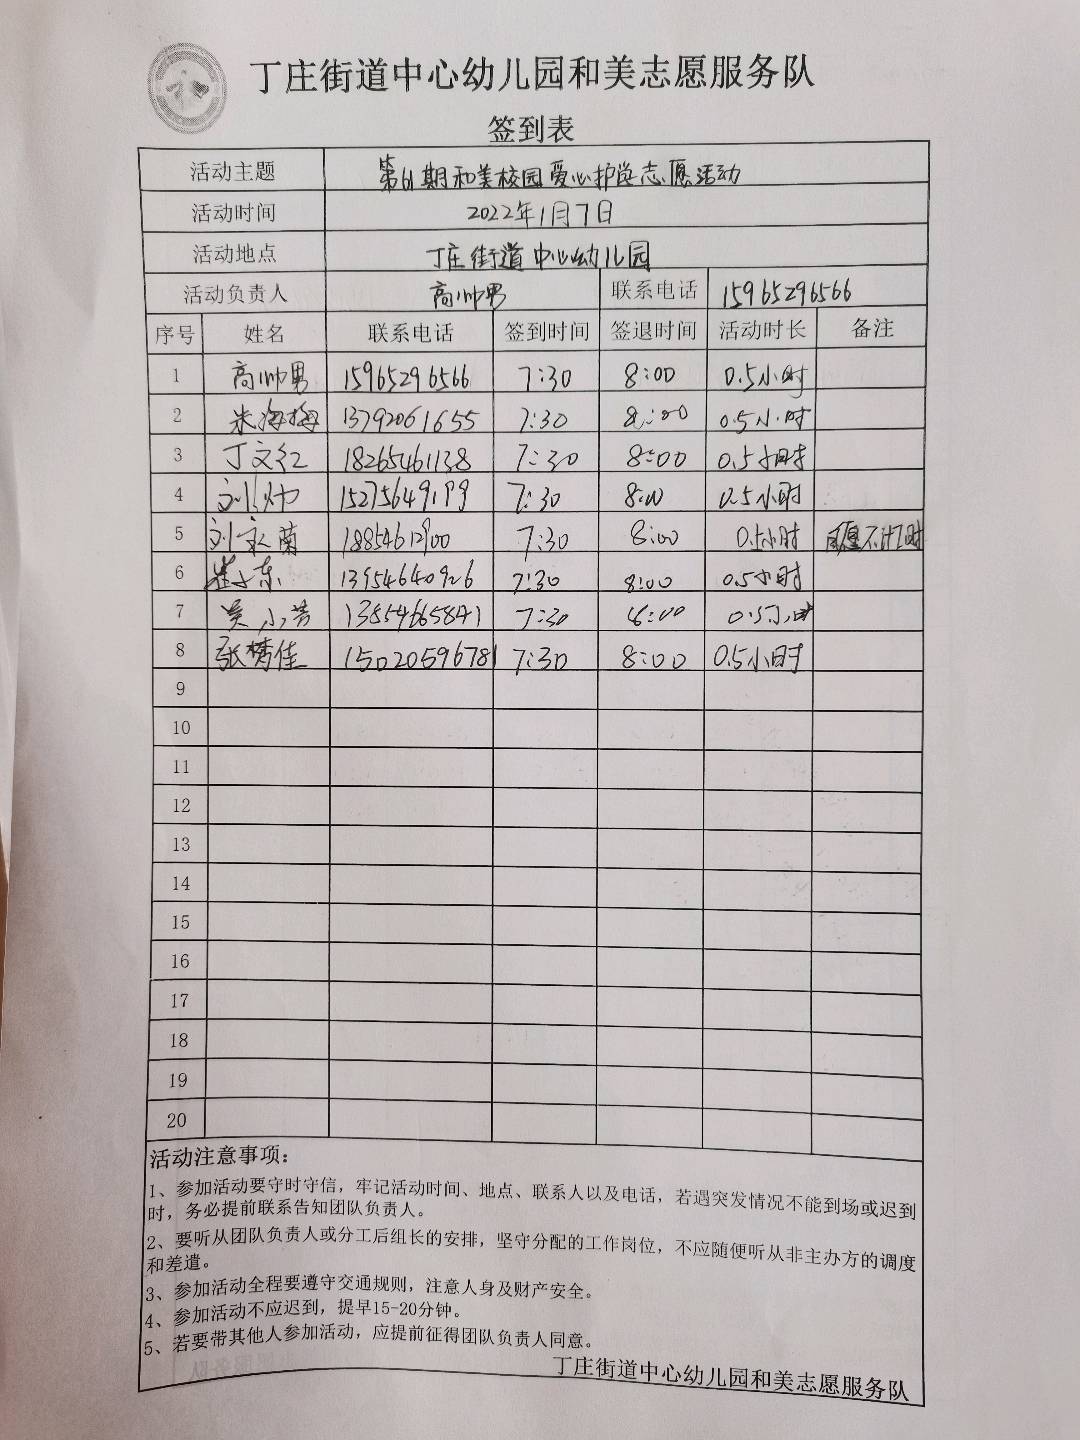 丁庄街道中心幼儿园和美志愿服务队
签到表
活动主题 第61期和美校园爱心护学志愿活动
活动时间 2022年1月7日
活动地点 丁庄街道中心幼儿园
活动负责人 高帅男 联系电话 15965296566
序号 姓名 联系电话 签到时间 签退时间 活动时长 备注
1 高帅男 15965296566 7:30 8:00 0.5小时
2 朱海梅 13792061655 7:30 8:00 0.5小时
3 丁文红 18265461138 7:30 8:00 0.5小时
4 刘 7:30 8:00 0.5小时
5 刘永菊 18854612900 7:30 8:00 0.5小时 自愿不计工时
6 崔小东 13954640926 7:30 8:00 0.5小时
7 吴小芳 7:30 8:00 0.5小时
8 张梦佳 15020596781 7:30 8:00 0.5小时
9
10
11
12
13
14
15
16
17
18
19
20
活动注意事项：
1、参加活动要守时守信，牢记活动时间、地点、联系人以及电话，若遇突发情况不能到场或迟到
时，务必提前联系告知团队负责人。
2、要听从团队负责人或分工后组长的安排，坚守分配的工作岗位，不应随便听从非主办方的调度
和差遣。
3、参加活动全程要遵守交通规则，注意人身及财产安全。
4、参加活动不应迟到，提早15-20分钟。
5、若要带其他人参加活动，应提前征得团队负责人同意。
丁庄街道中心幼儿园和美志愿服务队